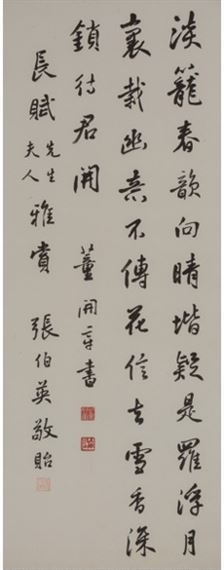 淡籠春韻向晴堦疑是羅浮月
裏栽幽意不傳花信去雪香深
鎖待君開 董開章書
長賦先生夫人雅賞 張伯英敬貽